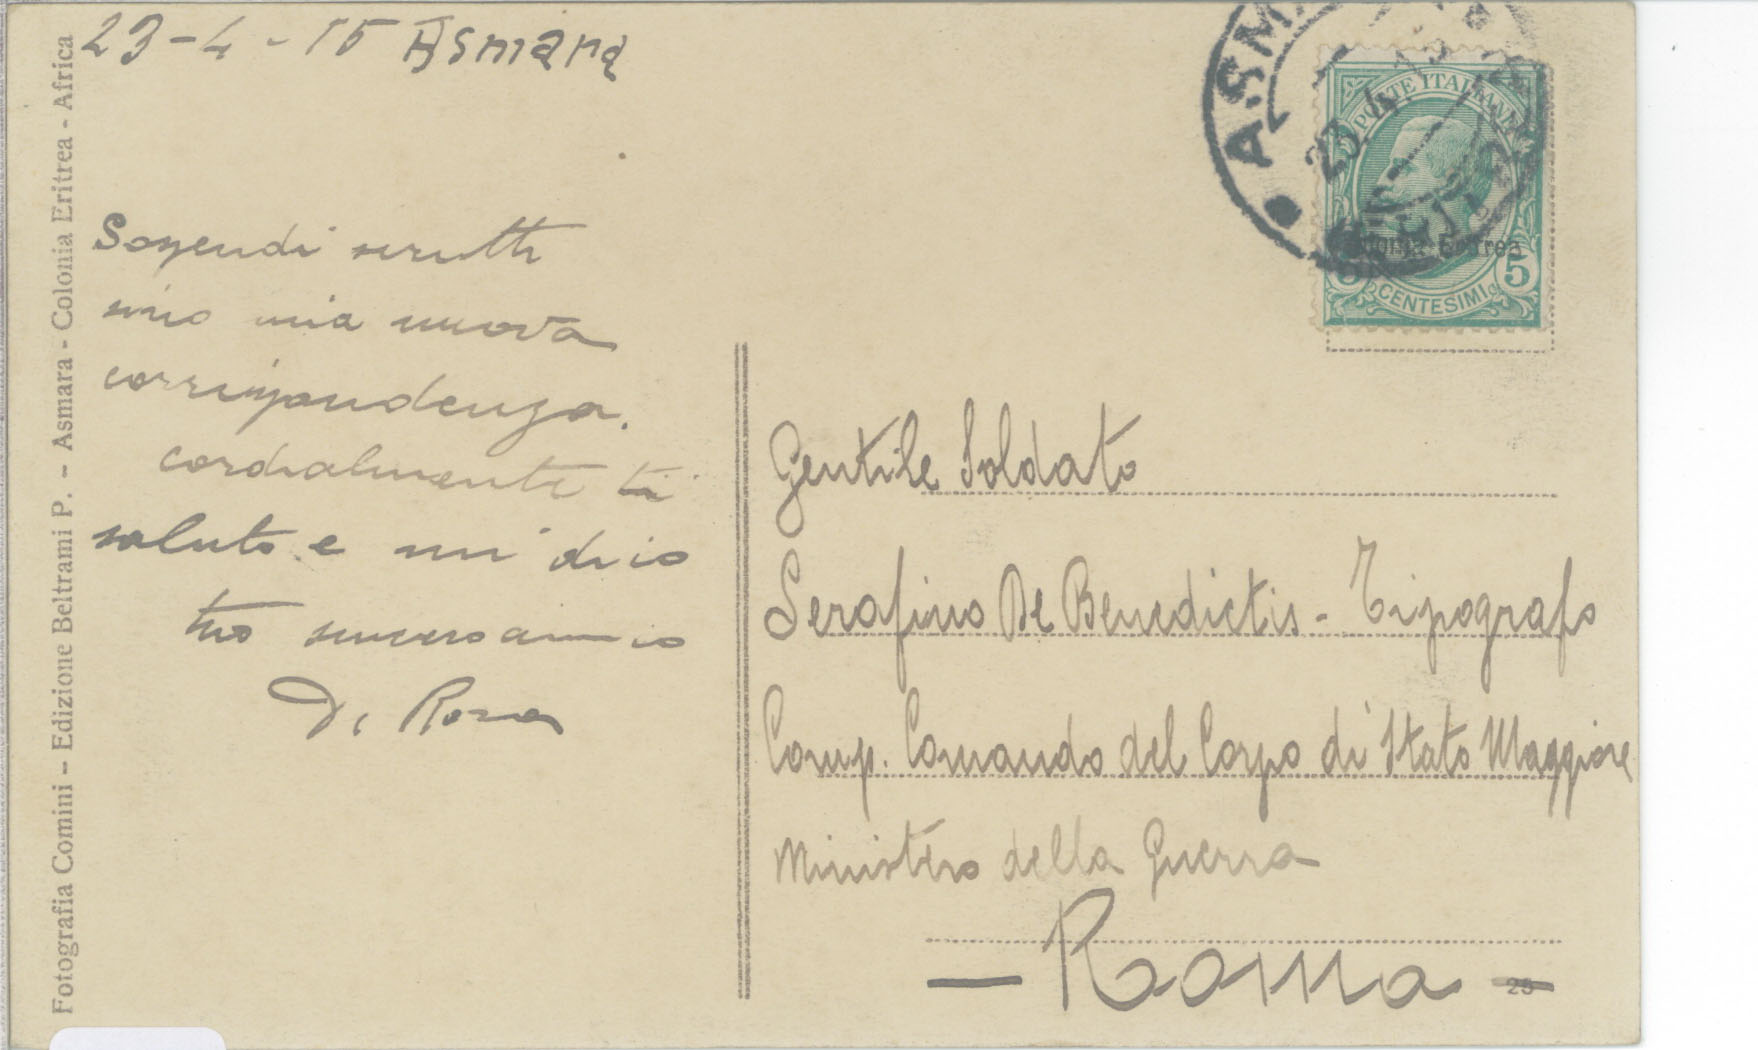 Fotografia Comini - Edizione Beltrami P. - Asmara - Colonia Eritrea - Africa
23-4-15 Asmara
Sospendi
mia nuova
corrispondenza.
cordialmente ti
saluto e mi dico
tuo sincero amico
Di Rosa
ASM
23.4.15
POSTE ITALIANE
Colonia Eritrea
5 CENTESIMI 5
Gentile Soldato
Serafino De Benedictis - Tipografo
Comp. Comando del Corpo di Stato Maggiore
Ministero della Guerra
- Roma -
25